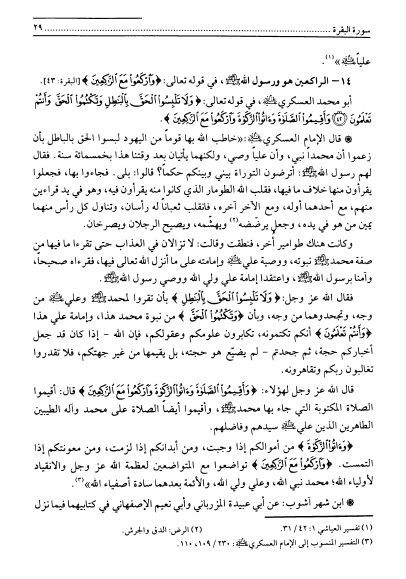 سورة البقرة ........................................................................ ٢٩
علياًﷺ»(١).
١٤ - الراكعين هو ورسول اللهﷺ، في قوله تعالى: ﴿وَأَرْكَعُوا مَعَ الرَّاكِعِينَ﴾ [البقرة: ٤٣].
أبو محمد العسكري، في قوله تعالى: ﴿وَلَا تَلْبِسُوا الْحَقَّ بِالْبَاطِلِ وَتَكْتُمُوا الْحَقَّ وَأَنتُمْ
تَعْلَمُونَ ﴿٤٢﴾ وَأَقِيمُوا الصَّلَاةَ وَءَاتُوا الزَّكَاةَ وَارْكَعُوا مَعَ الرَّاكِعِينَ﴾.
قال الإمام العسكري: «خاطب الله بها قوماً من اليهود لبسوا الحق بالباطل بأن
زعموا أن محمداً نبي، وأن علياً وصي، ولكنهما يأتيان بعد وقتنا هذا بخمسمائة سنة. فقال
لهم رسول الله: أترضون التوراة بيني وبينكم حكماً؟ قالوا: بلى. فجاءوا بها، فجعلوا
يقرأون منها خلاف ما فيها، فقلب الله الطومار الذي كانوا منه يقرأون فيه، وهو في يد قراءين
منهم، مع أحدهما أوله، ومع الآخر آخره، فانقلب ثعباناً له رأسان، وتناول كل رأس منهما
يمين من هو في يده، وجعل يرضّضه(٢) ويهشّمه، ويصيح الرجلان ويصرخان.
وكانت هناك طوامير أخر، فنطقت وقالت: لا تزالان في العذاب حتى تقرءا ما فيها من
صفة محمد نبوته، ووصية علي وإمامته على ما أنزل الله تعالى فيها، فقرءاه صحيحاً،
وآمنا برسول الله، واعتقدا إمامة علي ولي الله ووصي رسول الله.
فقال الله عز وجل: ﴿وَلَا تَلْبِسُوا الْحَقَّ بِالْبَاطِلِ﴾ بأن تقروا لمحمد وعلي من
وجه، وتجحدوهما من وجه، وبأن ﴿وَتَكْتُمُوا الْحَقَّ﴾ من نبوة محمد هذا، وإمامة علي هذا
﴿وَأَنتُمْ تَعْلَمُونَ﴾ أنكم تكتمونه، تكابرون علومكم وعقولكم، فإن الله - إذا كان قد جعل
أخباركم حجة، ثم جحدتم - لم يضيّع هو حجته، بل يقيمها من غير جهتكم، فلا تقدروا
تغالبون ربكم وتقاهرونه.
قال الله عز وجل لهؤلاء: ﴿وَأَقِيمُوا الصَّلَاةَ وَءَاتُوا الزَّكَاةَ وَارْكَعُوا مَعَ الرَّاكِعِينَ﴾ قال: أقيموا
الصلاة المكتوبة التي جاء بها محمد، وأقيموا أيضاً الصلاة على محمد وآله الطيبين
الطاهرين الذين علي سيدهم وفاضلهم.
﴿وَءَاتُوا الزَّكَاةَ﴾ من أموالكم إذا وجبت، ومن أبدانكم إذا لزمت، ومن معونتكم إذا
التمست. ﴿وَارْكَعُوا مَعَ الرَّاكِعِينَ﴾ تواضعوا مع المتواضعين لعظمة الله عز وجل والانقياد
لأولياء الله؛ محمد نبي الله، وعلي ولي الله، والأئمة بعدهما سادة أصفياء الله»(٣).
ابن شهر آشوب: عن أبي عبيدة المزرباني وأبي نعيم الإصفهاني في كتابيهما فيما نزل
(١) تفسير العياشي ١: ٤٢/ ٣١.
(٢) الرض: الدق والجرش.
(٣) التفسير المنسوب إلى الإمام العسكري: ٢٣٠/ ١٠٩، ١١٠.